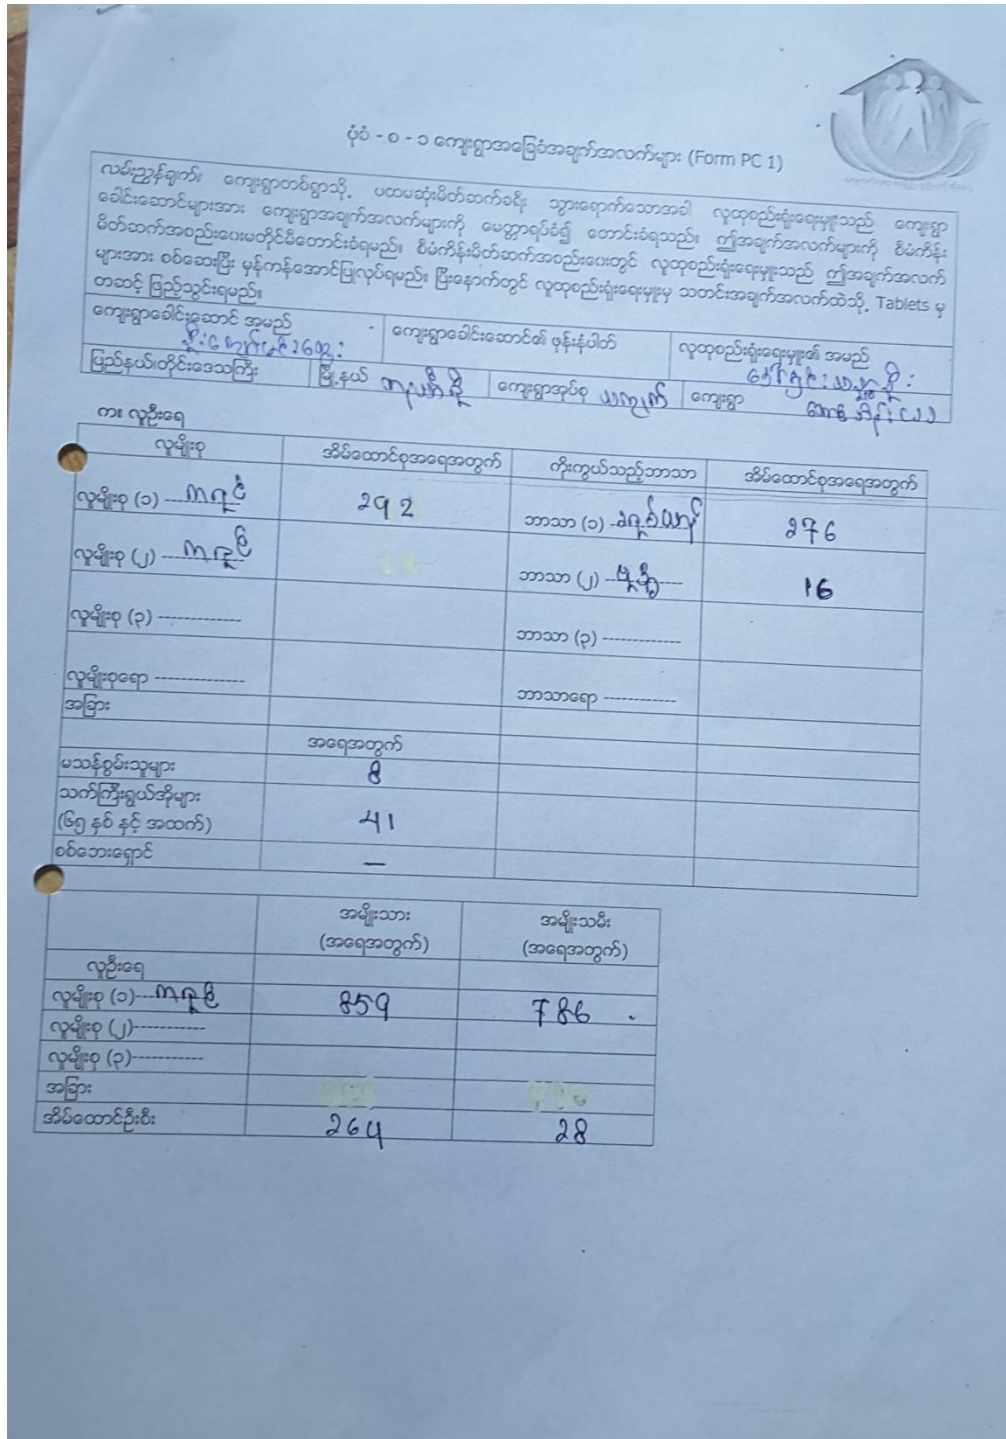 ပုံစံ - စ - ၁ ကျေးရွာအခြေခံအချက်အလက်များ (Form PC 1)
လမ်းညွှန်ချက်။ ကျေးရွာတစ်ရွာသို့ ပထမဆုံးမိတ်ဆက်ခရီး သွားရောက်သောအခါ လူထုစည်းရုံးရေးမှူးသည် ကျေးရွာ
ခေါင်းဆောင်များအား ကျေးရွာအချက်အလက်များကို မေတ္တာရပ်ခံ၍ တောင်းခံရသည်။ ဤအချက်အလက်များကို စီမံကိန်း
မိတ်ဆက်အစည်းဝေးမတိုင်မီတောင်းခံရမည်။ စီမံကိန်းမိတ်ဆက်အစည်းဝေးတွင် လူထုစည်းရုံးရေးမှူးသည် ဤအချက်အလက်
များအား စစ်ဆေးပြီး မှန်ကန်အောင်ပြုလုပ်ရမည်။ ပြီးနောက်တွင် လူထုစည်းရုံးရေးမှူးမှ သတင်းအချက်အလက်ထဲသို့ Tablets မှ
တဆင့် ဖြည့်သွင်းရမည်။
ကျေးရွာခေါင်းဆောင် အမည် ကျေးရွာခေါင်းဆောင်၏ ဖုန်းနံပါတ် လူထုစည်းရုံးရေးမှူး၏ အမည်
ပြည်နယ်/တိုင်းဒေသကြီး မြို့နယ် ကျေးရွာအုပ်စု ကျေးရွာ
က။ လူဦးရေ
လူမျိုးစု အိမ်ထောင်စုအရေအတွက် ကိုးကွယ်သည့်ဘာသာ အိမ်ထောင်စုအရေအတွက်
လူမျိုးစု (၁) ---- ကရင် 292 ဘာသာ (၁) -ခရစ်ယာန် 276
လူမျိုးစု (၂) ---- ကရင် ဘာသာ (၂) --ဗုဒ္ဓ---- 16
လူမျိုးစု (၃) ------------- ဘာသာ (၃) -------------
လူမျိုးစုရော -------------- ဘာသာရော ------------
အခြား
အရေအတွက်
မသန်စွမ်းသူများ 8
သက်ကြီးရွယ်အိုများ
(၆၅ နှစ် နှင့် အထက်) 41
စစ်ဘေးရှောင် —
အမျိုးသား အမျိုးသမီး
(အရေအတွက်) (အရေအတွက်)
လူဦးရေ
လူမျိုးစု (၁)---ကရင် 859 786
လူမျိုးစု (၂)-----------
လူမျိုးစု (၃)-----------
အခြား
အိမ်ထောင်ဦးစီး 264 28